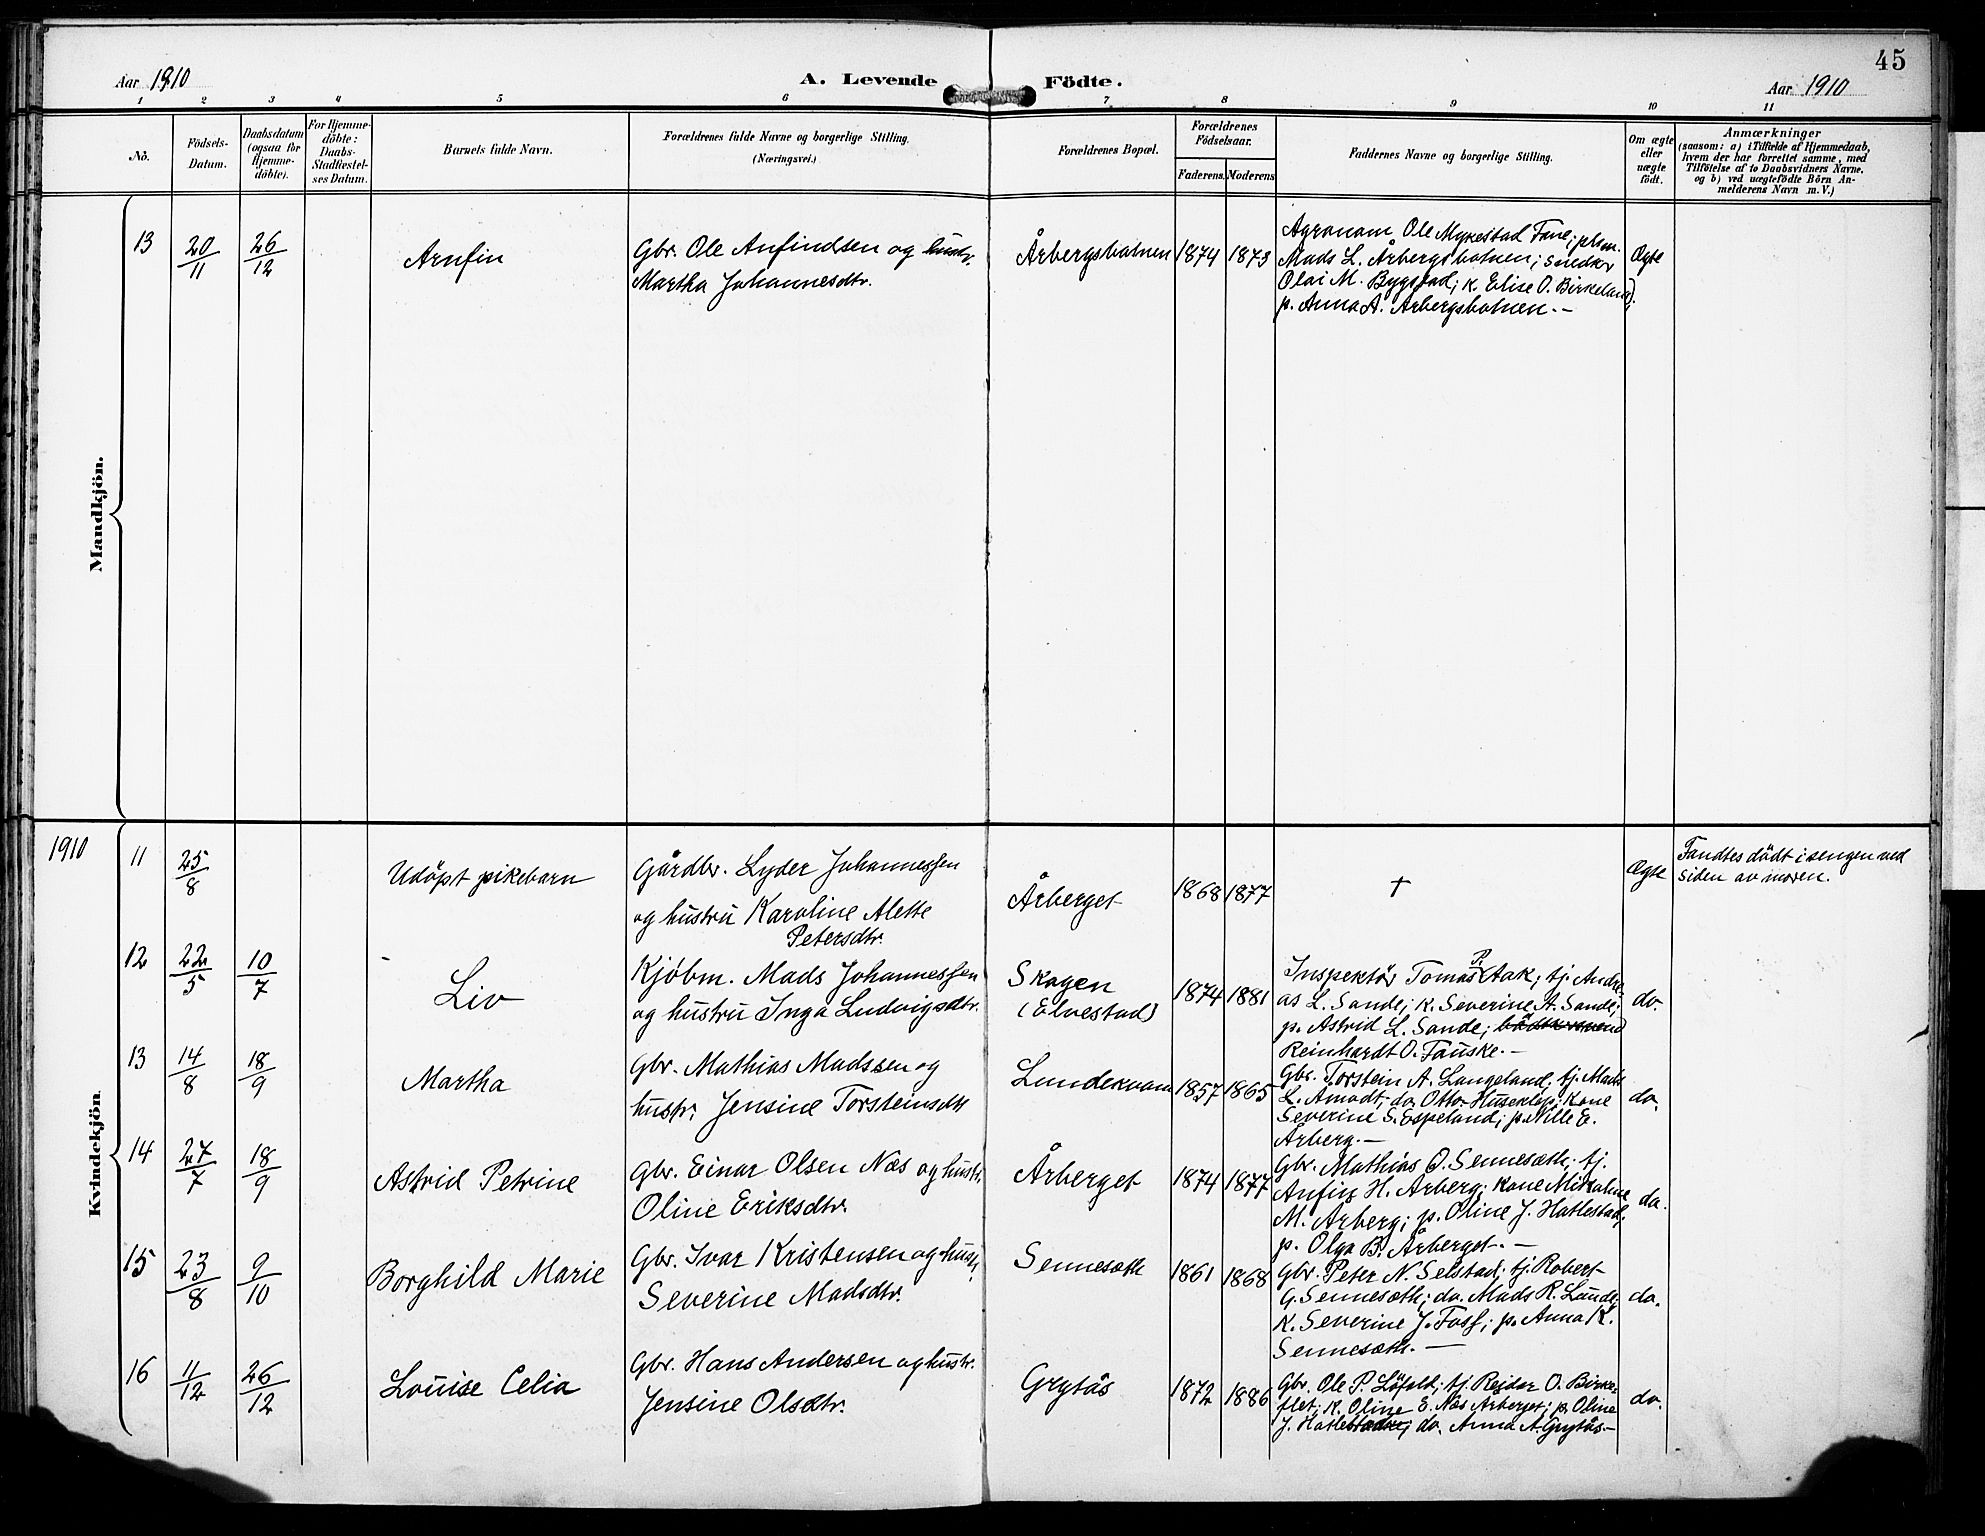 45
Aar 1910
A. Levende Födte.
Aar 1910
1 2 3 4 5 6 7 8 9 10 11
No.
Födsels-
Datum.
Daabsdatum
(ogsaa for
Hjemme-
döbte).
For Hjemme-
döbte:
Daabs-
Stadfæstel-
ses Datum.
Barnets fulde Navn.
Forældrenes fulde Navne og borgerlige Stilling.
(Næringsvei.)
Forældrenes Bopæl.
Forældrenes
Födselsaar.
Faderens. Moderens
Faddernes Navne og borgerlige Stilling.
Om ægte
eller
uægte
födt.
Anmærkninger
(saasom: a) i Tilfælde af Hjemmedaab,
hvem der har forrettet samme, med
Tilföielse af to Daabsvidners Navne,
og b) ved uægtefödte Börn An-
melderens Navn m. V.)
Mandkjön.
13
20/11
26/12
Arnfin
Gbr. Ole Anfindsen og hustr.
Martha Johannesdtr.
Årbergsbotnen
1874
1873
Agronom Ole Mykestad Fane;
Mads L. Årbergsbotnen; snedker
Olai M. Bygstad; k. Elise O. Birkeland;
p. Anna A. Årbergsbotnen.-
Ægte
Kvindekjön.
1910
11
25/8
Udöpt pikebarn
Gårdbr. Lyder Johannessen
og hustru Karoline Alette
Petersdtr.
Årberget
1868
1877
+
Ægte
Fandtes dödt i sengen ved
siden av moren.
12
22/5
10/7
Liv
Kjöbm. Mads Johannessen
og hustru Inga Ludvigsdtr.
Skogen
(Elvestad)
1874
1881
Inspektör Tomas P. Aak; tj. Andre-
as L. Sande; k. Severine A. Sande;
p. Astrid L. Sande;
Reinhardt O. Fauske.-
do.
13
14/8
18/9
Martha
Gbr. Mathias Madssen og
hustr. Jensine Torsteinsdtr
Lundekvam
1857
1865
Gbr. Torstein A. Langeland; tj. Mads
L. Amodt; do Otto Huseklep; Kone
Severine S. Espeland; p. Nille E.
Årberg.-
do.
14
27/7
18/9
Astrid Petrine
Gbr. Einar Olsen Næs og hustr.
Oline Eriksdtr.
Årberget
1874
1877
Gbr. Mathias O. Sennesæth; tj.
Anfin H. Årberg; Kone Mikaline
M. Årberg; p. Oline J. Hatlestad;
p. Olga B. Årberget.-
do.
15
23/8
9/10
Borghild Marie
Gbr. Ivar Kristensen og hustr.
Severine Madsdtr.
Sennesæth
1861
1868
Gbr. Peter N. Selstad; tj. Robert
G. Sennesæth; do. Mads R. Lunde;
K. Severine J. Foss; p. Anna K.
Sennesæth.-
do.
16
11/12
26/12
Louise Celia
Gbr. Hans Andersen og hustr.
Jensine Olsdtr.
Grytås
1872
1886
Gbr. Ole P. Löfald; tj. Reidar O. Birke-
flet; K. Oline E. Næs Årberget; p. Oline
J. Hatlestad; do. Anna A. Grytås-
do.